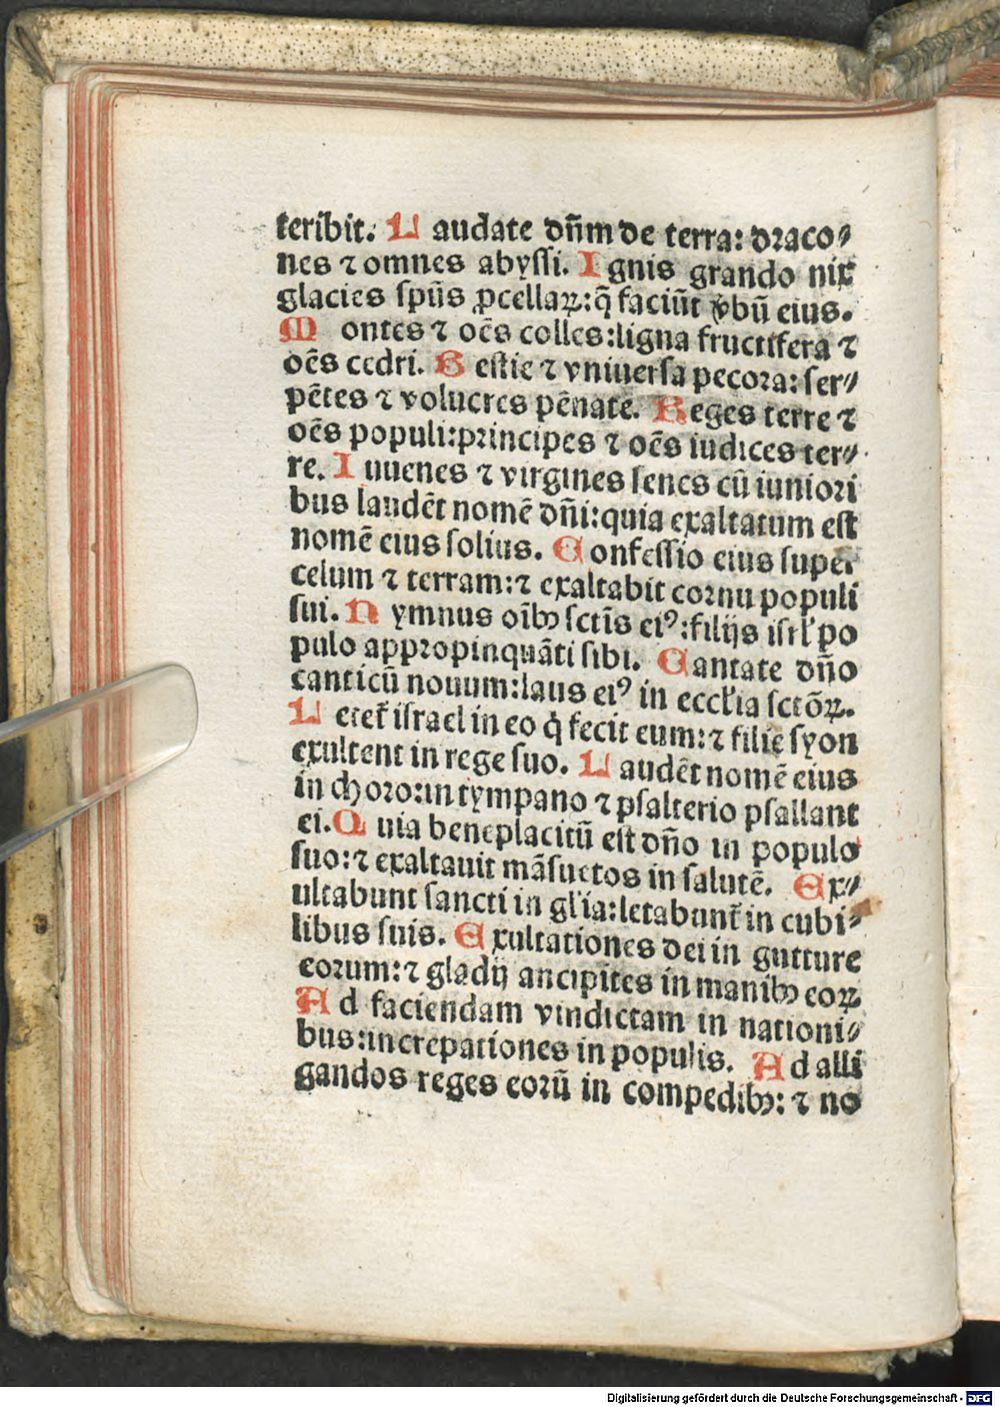 teribit. Laudate dñm de terra: draco⸗
nes ⁊ omnes abyſſi. Ignis grando nix
glacies ſpũs ꝓcellaꝝ: q̃ faciũt ꝟbũ eius.
Montes ⁊ oẽs colles: ligna fructifera ⁊
oẽs cedri. Beſtie ⁊ vniuerſa pecora: ſer⸗
pẽtes ⁊ volucres pẽnate. Reges terre ⁊
oẽs populi: principes ⁊ oẽs iudices ter⸗
re. Iuuenes ⁊ virgines ſenes cũ iuniori
bus laudẽt nomẽ dñi: quia exaltatum eſt
nomẽ eius ſolius. Confeſſio eius ſuper
celum ⁊ terram: ⁊ exaltabit cornu populi
ſui. Nymnus oĩbꝰ ſctĩs eiꝰ: filijs iſrl' po
pulo appropinquãti ſibi. Cantate dño
canticũ nouum: laus eiꝰ in eccl'ia ſctõꝝ.
Letet᷑ iſrael in eo q̇ fecit eum: ⁊ filie ſyon
exultent in rege ſuo. Laudẽt nomẽ eius
in choro: in tympano ⁊ pſalterio pſallant
ei. Quia beneplacitũ eſt dño in populo
ſuo: ⁊ exaltauit mãſuetos in ſalutẽ. Ex⸗
ultabunt ſancti in gl'ia: letabunt᷑ in cubi⸗
libus ſuis. Exultationes dei in gutture
eorum: ⁊ gladij ancipites in manibꝰ eoꝝ
Ad faciendam vindictam in nationi⸗
bus: increpationes in populis. Ad alli
gandos reges eorũ in compedibꝰ: ⁊ no
Digitalisierung gefördert durch die Deutsche Forschungsgemeinschaft - DFG